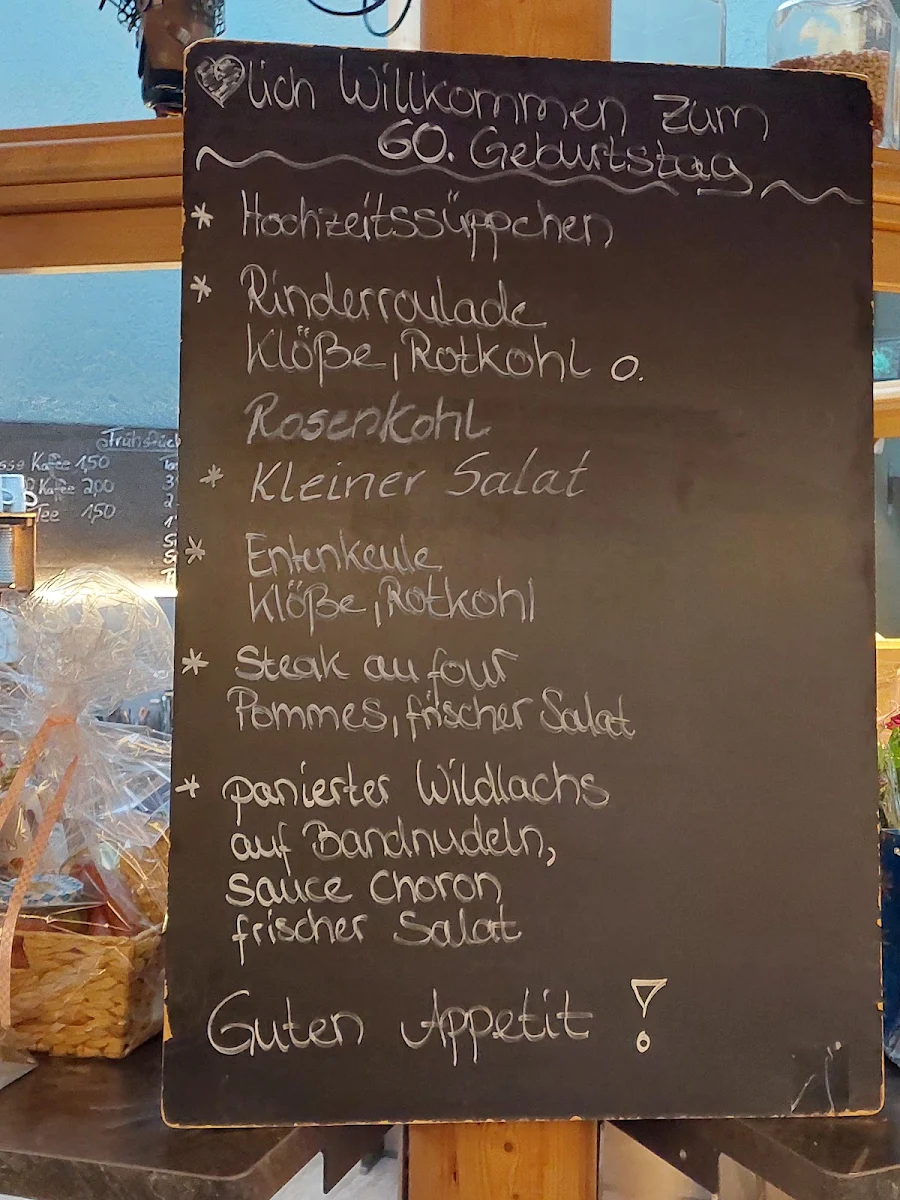 ♥lich Willkommen zum
60. Geburtstag
* Hochzeitssüppchen
* Rinderroulade
Klöße, Rotkohl o.
Rosenkohl
* Kleiner Salat
* Entenkeule
Klöße, Rotkohl
* Steak au four
Pommes, frischer Salat
* panierter Wildlachs
auf Bandnudeln,
Sauce Choron
frischer Salat
Guten Appetit !
Frühstück
Kaffee 1,50
Kaffee 2,00
Tee 1,50